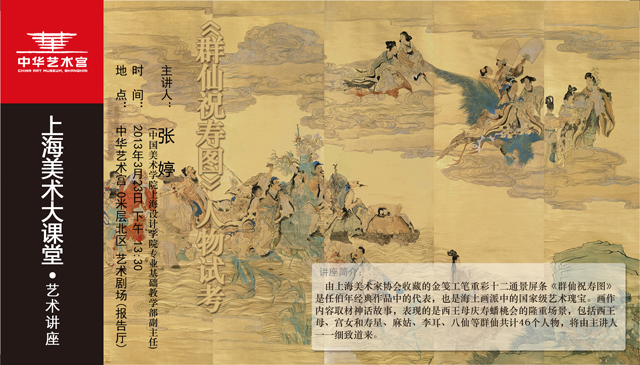 中华艺术宫
CHINA ART MUSEUM, SHANGHAI
上海美术大课堂·艺术讲座
《群仙祝寿图》人物试考
主讲人：张婷
(中国美术学院上海设计学院专业基础教学部副主任)
时 间：2013年3月23日 下午13:30
地 点：中华艺术宫 0米层北区 艺术剧场(报告厅)
讲座简介：
由上海美术家协会收藏的金笺工笔重彩十二通景屏条《群仙祝寿图》
是任伯年经典作品中的代表，也是海上画派中的国家级艺术瑰宝。画作
内容取材神话故事，表现的是西王母庆寿蟠桃会的隆重场景，包括西王
母、宫女和寿星、麻姑、李耳、八仙等群仙共计46个人物，将由主讲人
一一细致道来。